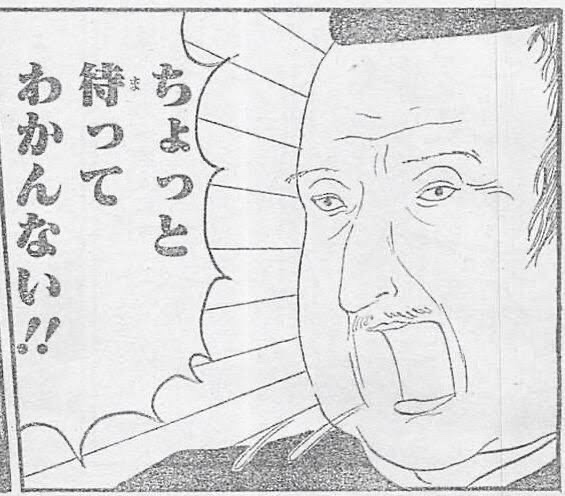 ちょっと
待って
わかんない!!